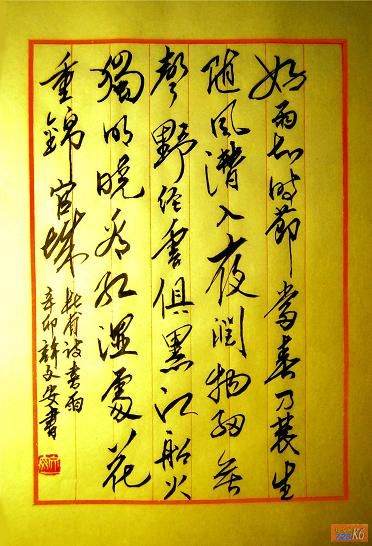 好雨知時節當春乃發生
随風潛入夜潤物細無
聲野徑雲俱黑江船火
獨明曉看紅濕處花
重錦官城
杜甫诗春雨
辛卯許文安書
K6